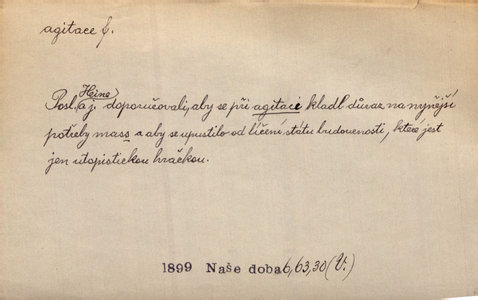 agitace f.
Posl. Heine a j. doporučovali, aby se při agitaci kladl důraz na nynější
potřeby mass a aby se upustilo od líčení státu budoucnosti, která jest
jen utopistickou hračkou.
1899 Naše doba 6,63,30 (V.)